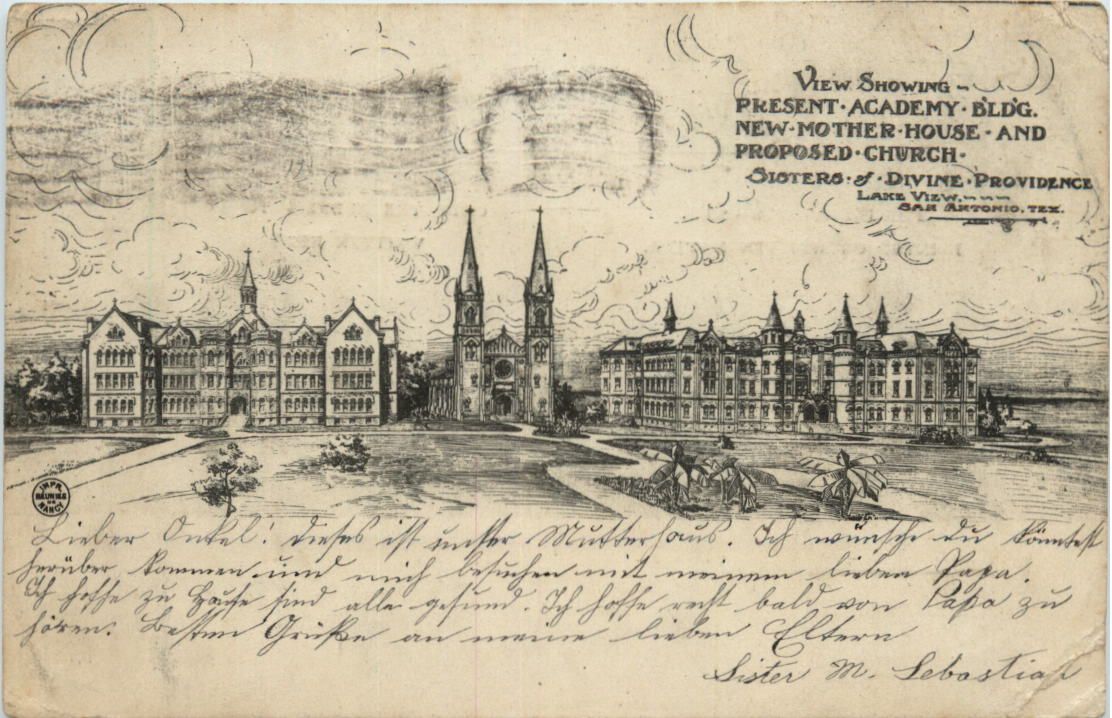 VIEW SHOWING -
PRESENT · ACADEMY · BLD'G.
NEW · MOTHER · HOUSE · AND
PROPOSED · CHURCH ·
SISTERS · of · DIVINE · PROVIDENCE
LAKE VIEW.
SAN ANTONIO, TEX.
IMPR.
REUNIES
DE
NANCY
Lieber Onkel! dieses ist unser Mutterhaus. Ich wünsche du könntest
herüber kommen und mich besuchen mit meinem lieben Papa.
Ich hoffe zu Hause sind alle gesund. Ich hoffe recht bald von Papa zu
hören. Besten Grüße an meine lieben Eltern
Sister M. Sebastian